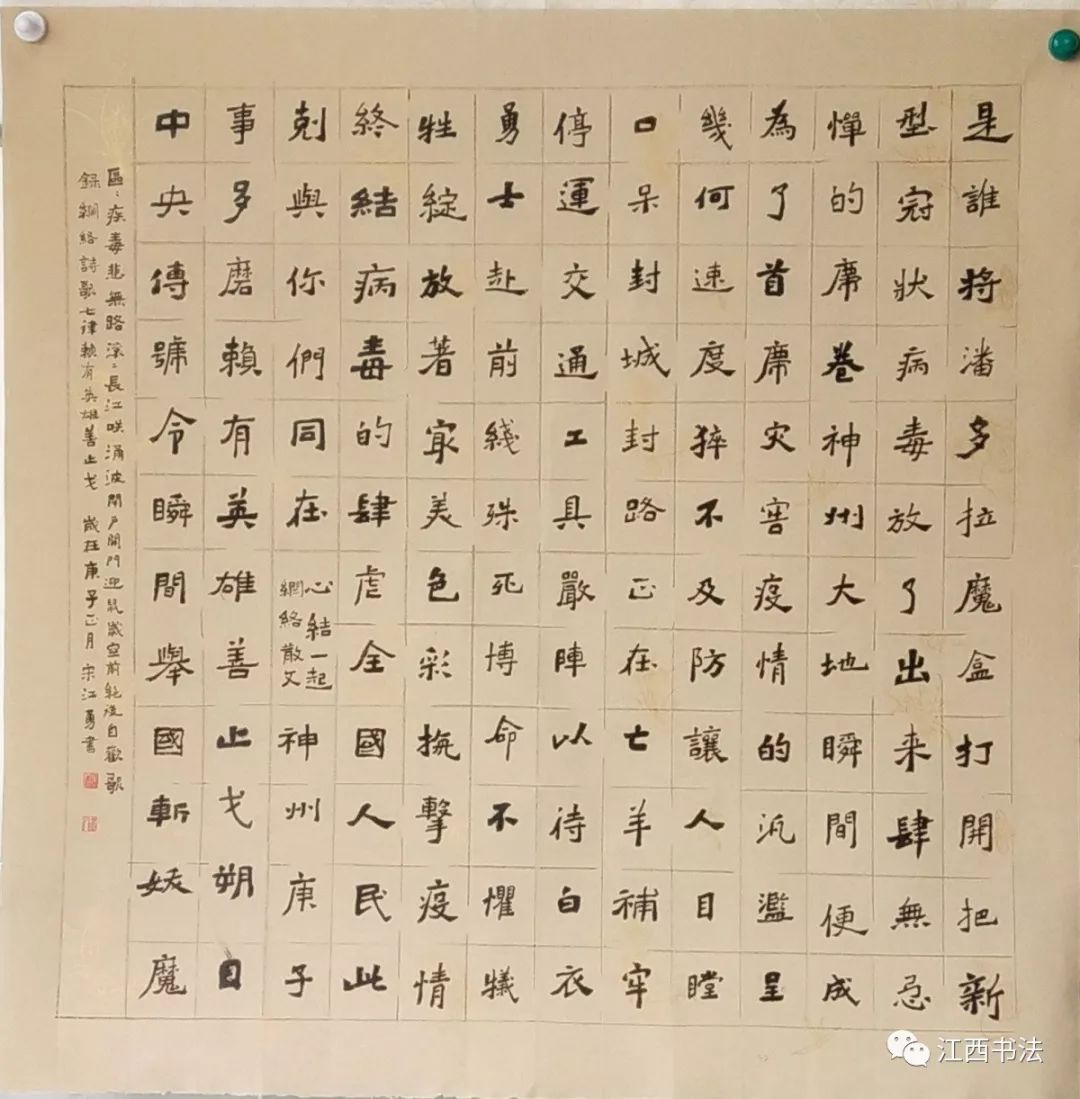 是誰將潘多拉魔盒打開把新
型冠狀病毒放了出来肆無忌
憚的席卷神州大地瞬間便成
為了首席灾害疫情的汎濫呈
幾何速度猝不及防讓人目瞠
口呆封城封路正在亡羊補牢
停運交通工具嚴陣以待白衣
勇士赴前綫殊死博命不懼犠
牲綻放著㝡美色彩撫擊疫情
終結病毒的肆虐全國人民此
剋與你們同在
心結一起
網絡散文
神州庚子
事多磨賴有英雄善止戈朔日
中央傳號令瞬間舉國斬妖魔
區:疾毒悲無路滚:長江咲涌波閉戶開門迎鼠歲空前絶後自歡歌
録網絡詩歌七律賴有英雄善止戈 歲在庚子正月宋江勇書
江西书法